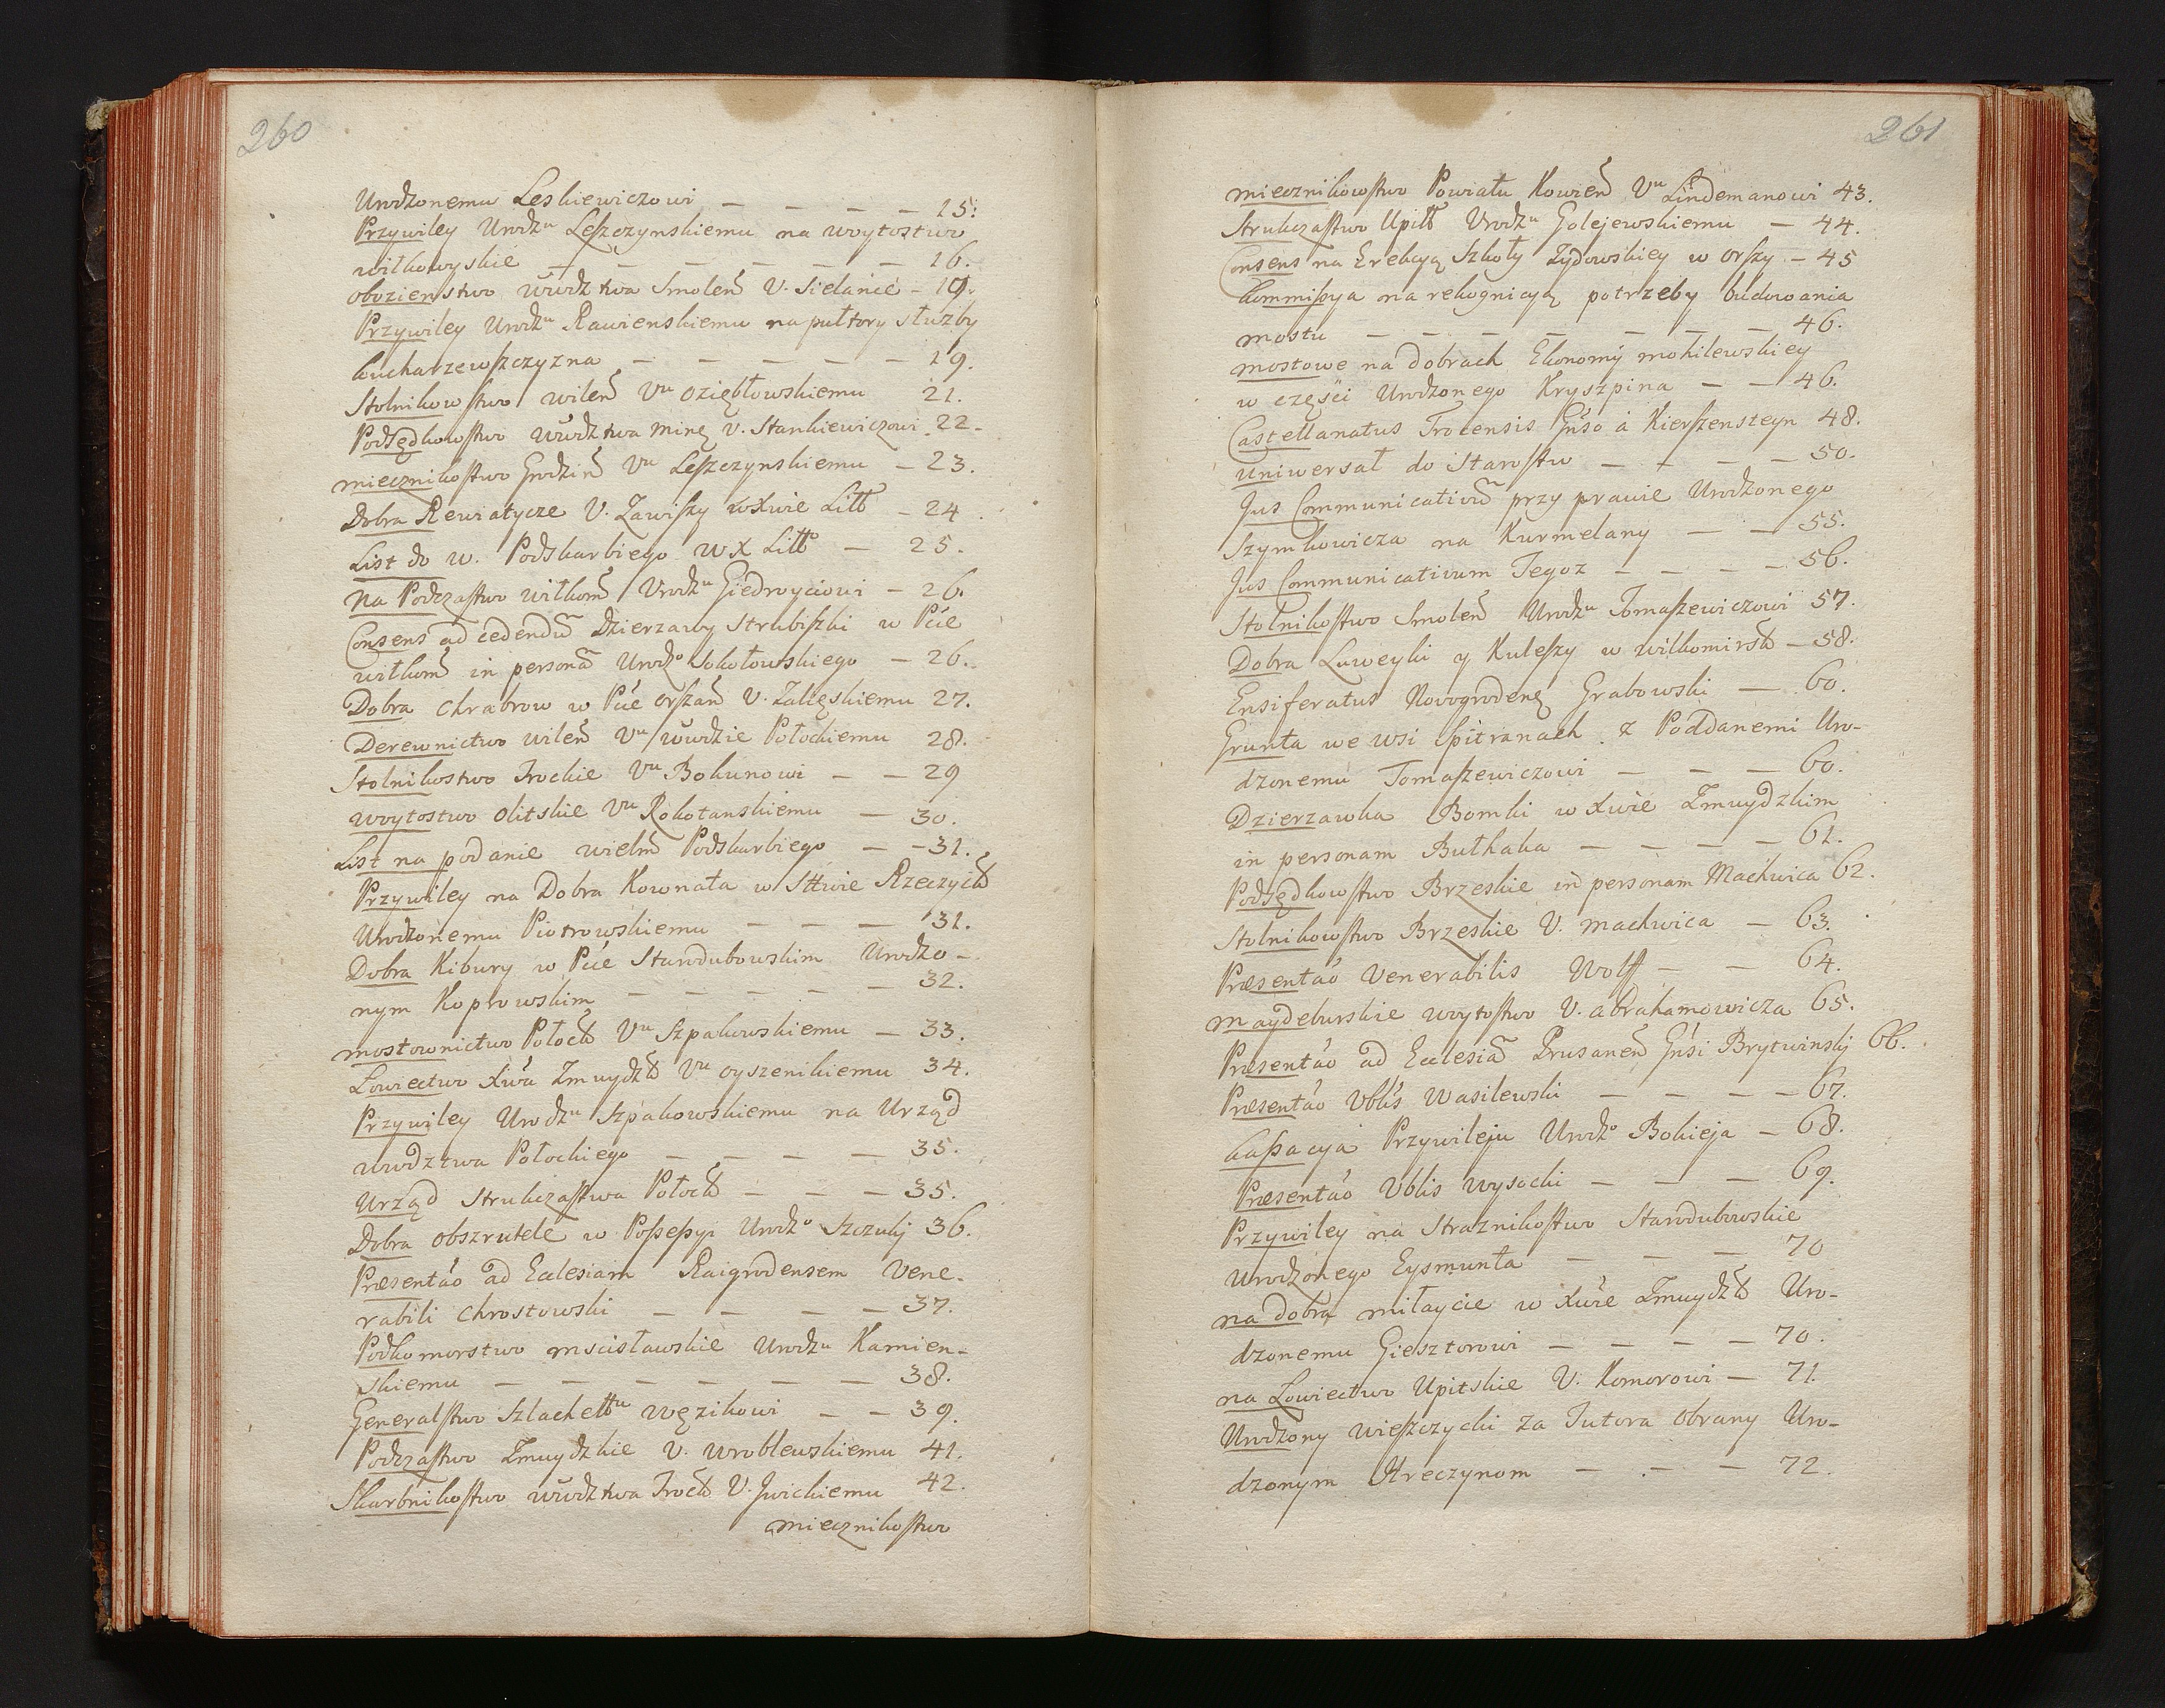 260
Urodzonemu Leskiewiczowi — — — — 15.
Przywiley Urodzu Leszczynskiemu na woytostwo
wiłkowyskie — — — — — — 16.
obozienstwo wwdztwa Smoleń V. Sielanie — 19.
Przywiley Urodzu Rawienskiemu na pułtory służby
kucharzewszczyzna — — — — — 19.
Stolnikowstwo wileń Vu oziębłowskiemu 21.
Podsędkowstwo wwdztwa Minę V. Stankiewiczowi 22.
miecznikostwo Grodzień Vu Leszczynskiemu — 23.
Dobra Rewiatycze V. Zawiszy w Xwie Litt — 24.
List do w. Podskarbiego W X Litto — 25.
Na Podczastwo wiłkom Urodzu Giedroyciowi — 26.
Consens ad cedendū Dzierzawy Strubiszki w Pcie
wiłkom in personā Urodzo Sokołowskiego — 26.
Dobra Chrabrow w Pcie orszań V. Zalęskiemu 27.
Derewnictwo wileń Vu wwdzie Połockiemu 28.
Stolnikostwo Trockie Vu Bokunowi — — 29
woytostwo Olitskie Vu Rokotanskiemu — 30.
List na podanie wielm Podskarbiego — — 31.
Przywiley na Dobra Kownata w Sttwie Rzeczyck
Urodzonemu Piotrowskiemu — — — 31.
Dobra Kibury w Pcie Starodubowskim Urodzo-
nym Koprowskim — — — — — 32.
mostownictwo Połock Vu Szpakowskiemu — 33.
Łowiectwo Xwa Zmuydzk Vu oyszenikiemu 34.
Przywiley Urodzu Szpakowskiemu na Urząd
wwdztwa Połockiego — — — — 35.
Urząd Strukczastwa Połock — — — 35.
Dobra obszrutele w Possessyi Urodzo Szczuki 36.
Præsentao ad Ecclesiam Raigrodensem Vene-
rabili Chrostowski — — — — 37.
Podkomorstwo mscisławskie Urodzu Kamien-
skiemu — — — — — — 38.
Generalstwo Szlachettu Węzikowi — — 39.
Podczastwo Zmuydzkie V. Wroblewskiemu 41.
Skarbnikostwo wwdztwa Trock V. Jwickiemu 42.
miecznikostwo
261
miecznikowstwo Powiatu Kowień Vu Lindemanowi 43.
Strukczastwo Upitt Urodzu Golejewskiemu — 44.
Consens na Erekcyą Szkoły Żydowskiey w Orszy — 45
Kommissya na rekognicyą potrzeby budowania
mostu — — — — — — — 46.
mostowe na dobrach Ekonomij mohilewskiey
w części Urodzonego Kryszpina — — 46.
Castellanatus Trocensis Gnso á Kierszensteyn 48.
Uniwersał do Starostw — — — — 50.
Jus Communicativū przy prawie Urodzonego
Szymkowicza na Kurmelany — — 55.
Jus Communicativum Tegoz — — — — 56.
Stolnikostwo Smoleń Urodzu Tomaszewiczowi 57.
Dobra Luweyki y Kuleszy w wilkomirsk — 58.
Ensiferatus Novogrodenę Grabowski — 60.
Grunta we wsi Spitranach z Poddanemi Uro-
dzonemu Tomaszewiczowi — — — 60.
Dzierzawka Bomki w Xwie Zmuydzkim
in personam Buthaka — — — — 61.
Podsędkowstwo Brzeskie in personam Machwica 62.
Stolnikowstwo Brzeskie V. machwica — 63.
Præsentao Venerabilis Wolff — — 64.
maydeburskie woytostwo V. abrahamowicza 65.
Præsentao ad Ecclesiā Prusaneń Gnsi Brytwinskij 66.
Præsentao Vblis Wasilewski — — — — 67.
kassacya Przywileju Urodzo Bokieja — 68.
Præsentao Vblis wysocki — — — 69.
Przywiley na Straznikostwo Starodubowskie
Urodzonego Eysmunta — — — 70
na dobra miłaycie w Xwie Zmuydzk Uro-
dzonemu Giesztorowi — — — — 70.
na Łowiectwo Upitskie V. Komorowi — 71.
Urodzony wieszczycki za Tutora obrany Uro-
dzonym Hreczynom — — — 72.